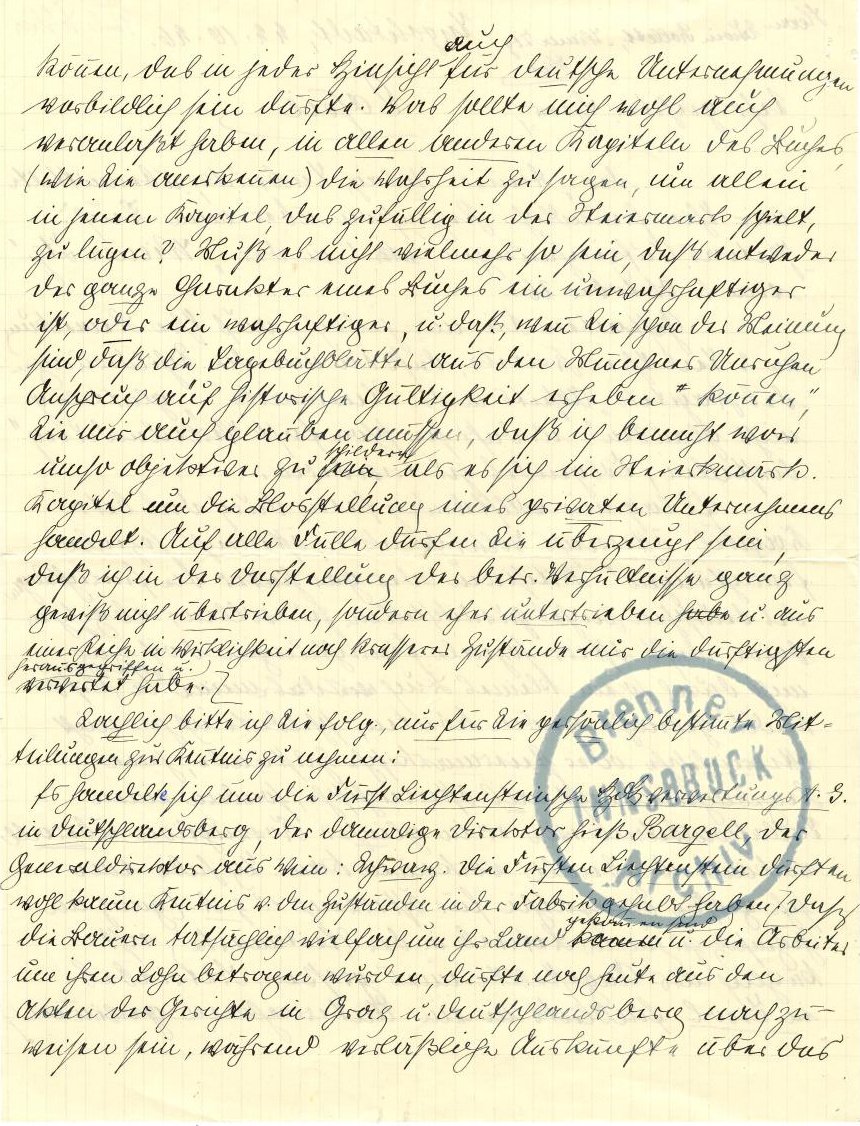 können, das in jeder Hinsicht auch für deutsche Unternehmungen
vorbildlich sein dürfte. Was sollte mich wohl auch
veranlaßt haben, in allen anderen Kapiteln des Buches,
(wie Sie anerkennen) die Wahrheit zu sagen, um allein
in jenem Kapitel, das zufällig in der Steiermark spielt,
zu lügen? Muß es nicht vielmehr so sein, daß entweder
der ganze Charakter eines Buches ein unwahrhaftiger
ist, oder ein wahrhaftiger, u. daß, wenn Sie schon der Meinung
sind, daß die Tagebuchblätter aus den Münchner Unruhen
Anspruch auf historische Gültigkeit erheben "können",
Sie mir auch glauben müssen, daß ich bemüht war
umso objektiver zu schildern, als es sich im Steierkmärk.
Kapitel um die Blosstellung eines privaten Unternehmens
handelt. Auf alle Fälle dürfen Sie überzeugt sein,
daß ich in der Darstellung der betr. Verhältnisse ganz
gewiß nicht übertrieben, sondern eher untertrieben habe u. aus
einer Reihe in Wirklichkeit noch krasserer Zustände nur die dürftigsten
herausgegriffen u.
verwertet habe.]
Sachlich bitte ich Sie folg., nur für Sie persönlich bestimte Mit=
teilungen zur Kentnis zu nehmen:
Es handelte sich um die Fürst Liechtensteinsche Holzverwertungs A. G.
in Deutschlandsberg, der damalige Direktor hieß Bargell, der
Generaldirektor aus Wien: Schwarz. Die Fürsten Liechtenstein dürften
wohl kaum Kentnis v. den Zuständen in der Fabrik gehabt haben. Daß
die Bauern tatsächlich vielfach um ihr Land gekommen sind u. die Arbeiter
um ihren Lohn betrogen wurden, dürfte noch heute aus den
Akten der Gerichte in Graz u. Deutschlandsberg nachzu-
weisen sein, während verläßliche Auskünfte über das
Brenner
INNSBRUCK
Archiv